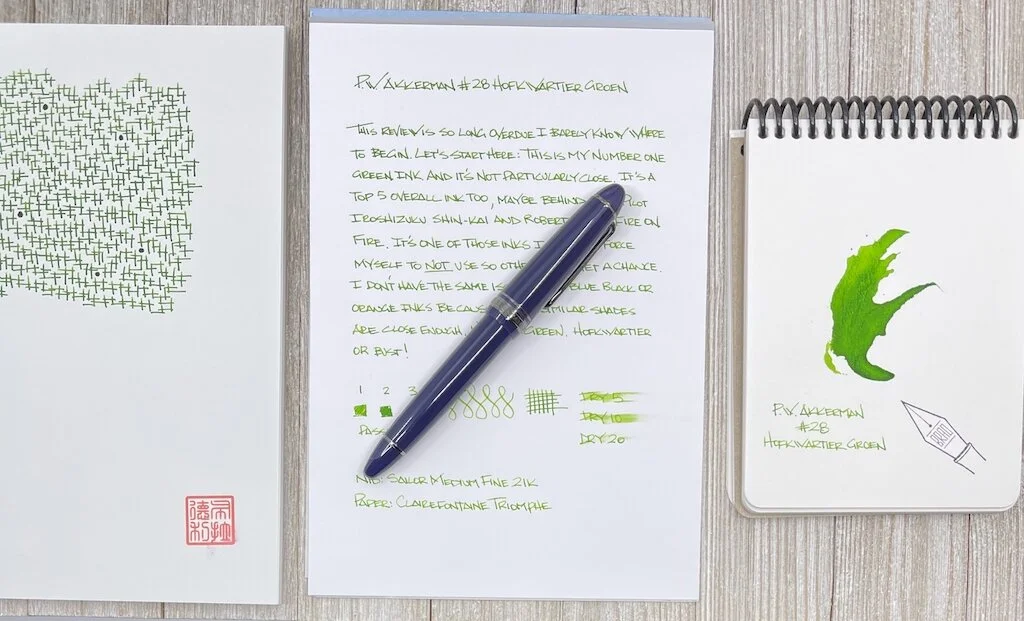 P.W. AKKERMAN #28 HOFKWARTIER GROEN
THIS REVIEW IS SO LONG OVERDUE I BARELY KNOW WHERE
TO BEGIN. LET'S START HERE: THIS IS MY NUMBER ONE
GREEN INK AND IT'S NOT PARTICULARLY CLOSE. IT'S A
TOP 5 OVERALL INK TOO, MAYBE BEHIND
IROSHIZUKU SHIN-KAI AND ROBERT ON
FIRE. IT'S ONE OF THOSE INKS I FORCE
MYSELF TO NOT USE SO A CHANCE.
I DON'T HAVE THE SAME BLUE BLACK OR
ORANGE INKS SIMILAR SHADES
ARE CLOSE ENOUGH. GREEN. HOFKWARTIER
OR BUST!
1 2 3
DRY 5
DRY 10
DRY 20
NIB: SAILOR MEDIUM FINE 21K
PAPER: CLAIREFONTAINE TRIOMPHE
P.W. AKKERMAN
#28
HOFKWARTIER GROEN
BRAD